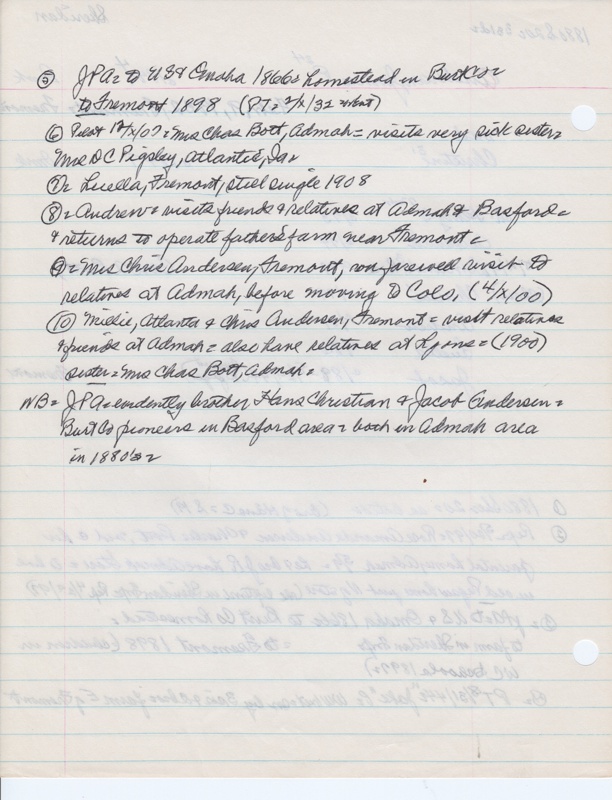 ⑤ JPA = to US & Omaha 1866 = homestead in Burt Co =
to Fremont 1898 (PT = 2/X/32
⑥ Rest 12/X/07 = Mrs Chas Bott, Admah = visits very sick sister =
Mrs DC Pigsley, Atlantic, Ia =
⑦ = Luella, Fremont, still single 1908
⑧ = Andrew = visits friends & relatives at Admah & Basford =
& returns to operate father's farm near Fremont =
⑨ = Mrs Chris Andersen, Fremont, on farewell visit to
relatives at Admah, before moving to Colo, (4/X/00)
⑩ Millie, Atlanta & Chris Andersen, Fremont = visit relatives
& friends at Admah = also have relatives at Lyons = (1900)
sister = Mrs Chas Bott, Admah =
NB = JPA = evidently brother Hans Christian & Jacob Andersen =
Burt Co pioneers in Basford area = both in Admah area
in 1880's =